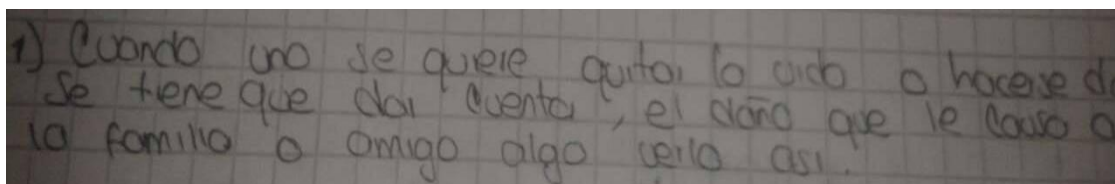 1) Cuando uno se quiere quitar la vida o hacerse d
se tiene que dar cuenta, el daño que le causa a
la familia o amigo algo verlo asi.